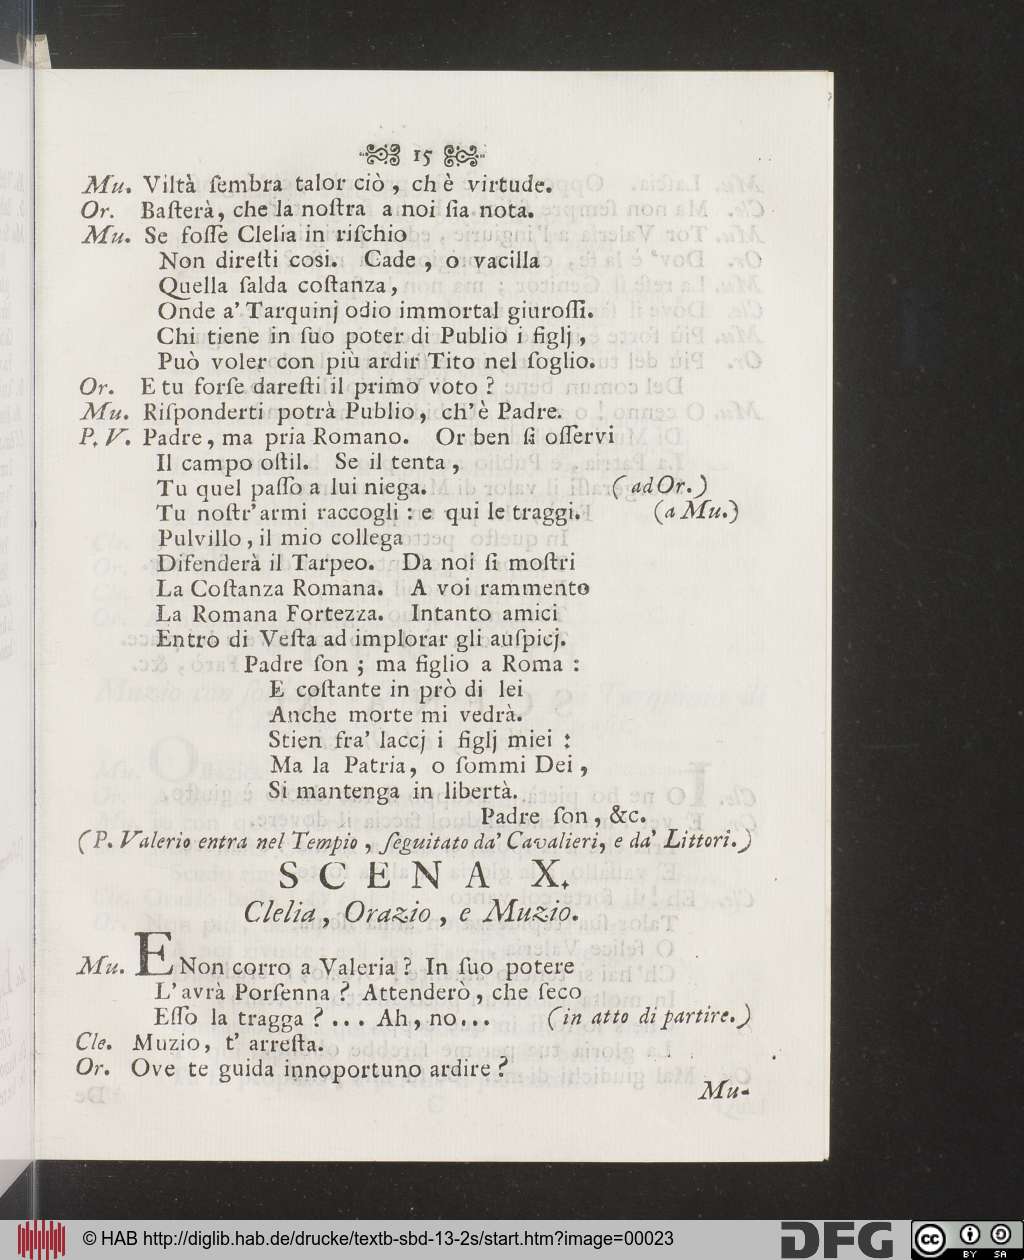 15
Mu. Viltà ſembra talor ciò, ch è virtude.
Or. Baſterà, che la noſtra a noi ſia nota.
Mu. Se foſſe Clelia in riſchio
Non direſti cosi. Cade, o vacilla
Quella ſalda coſtanza,
Onde a' Tarquinj odio immortal giuroſſi.
Chi tiene in ſuo poter di Publio i figlj,
Può voler con più ardir Tito nel ſoglio.
Or. E tu forſe dareſti il primo voto?
Mu. Riſponderti potrà Publio, ch'è Padre.
P. V. Padre, ma pria Romano. Or ben ſi oſſervi
Il campo oſtil. Se il tenta,
Tu quel paſſo a lui niega. (ad Or.)
Tu noſtr'armi raccogli: e qui le traggi. (a Mu.)
Pulvillo, il mio collega
Difenderà il Tarpeo. Da noi ſi moſtri
La Coſtanza Romana. A voi rammento
La Romana Fortezza. Intanto amici
Entro di Veſta ad implorar gli auſpicj.
Padre ſon; ma figlio a Roma:
E coſtante in prò di lei
Anche morte mi vedrà.
Stien fra' laccj i figlj miei:
Ma la Patria, o ſommi Dei,
Si mantenga in libertà.
Padre ſon, &c.
(P. Valerio entra nel Tempio, ſeguitato da' Cavalieri, e da' Littori.)
SCENA X.
Clelia, Orazio, e Muzio.
Mu. E Non corro a Valeria? In ſuo potere
L'avrà Porſenna? Attenderò, che ſeco
Eſſo la tragga?... Ah, no... (in atto di partire.)
Cle. Muzio, t' arreſta.
Or. Ove te guida innoportuno ardire?
Mu-
© HAB http://diglib.hab.de/drucke/textb-sbd-13-2s/start.htm?image=00023
DFG
cc BY SA